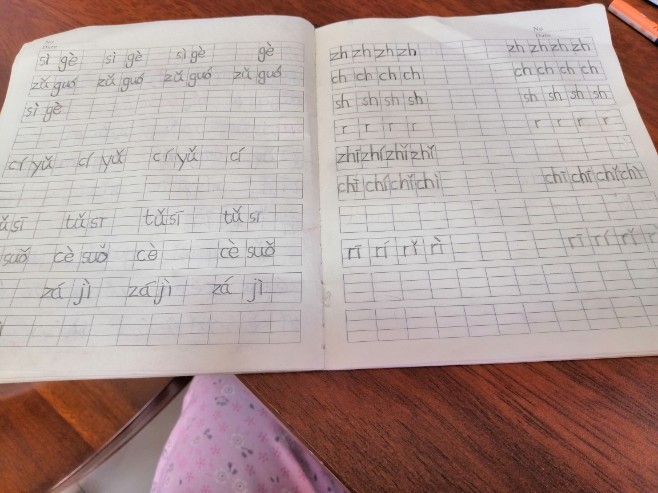 No
Date
sì gè sì gè sì gè gè
zǔ guó zǔ guó zǔ guó zǔ guó
sì gè
cí yǔ cí yǔ cí yǔ cí
sī tǔ sī tǔ sī tǔ sī
suǒ cè suǒ cè cè suǒ
zá jì zá jì zá jì
No
Date
zh zh zh zh zh zh zh zh
ch ch ch ch ch ch ch ch
sh sh sh sh sh sh sh sh
r r r r r r r r
zhī zhí zhǐ zhǐ
chī chí chǐ chì chī chī chǐ chì
rī rí rǐ rì rī rí rǐ